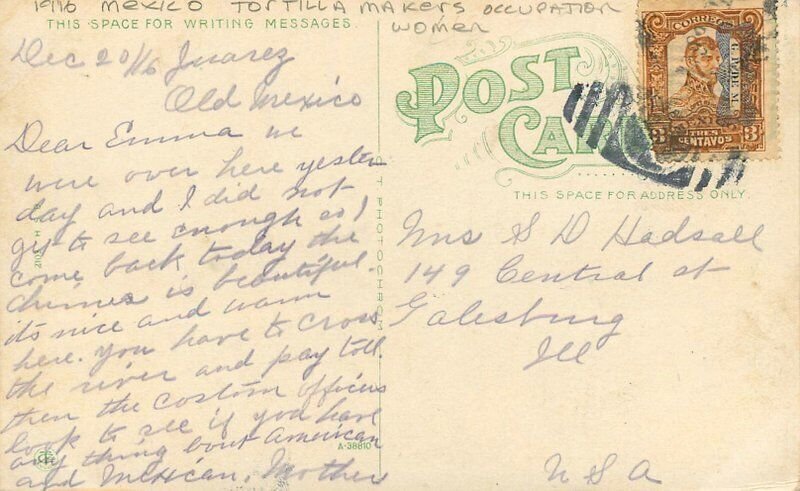 1916 MEXICO TORTILLA MAKERS OCCUPATION
WOMEN
THIS SPACE FOR WRITING MESSAGES.
Dec 20/16 Juarez
Old Mexico
Dear Emma we
were over here yester
day and I did not
get to see enough so I
come back today the
chimes is beautiful.
its nice and warm
here. you have to cross
the river and pay toll.
then the custom officers
look to see if you have
any thing bout American
and Mexican, Mother
A-38810
PHOTOCHROM
POST
CARD
THIS SPACE FOR ADDRESS ONLY.
CORREOS
G. P. DE M.
3 TRES 3
CENTAVOS
Mrs S D Hadsall
149 Central st
Galesburg
Ill
U S A